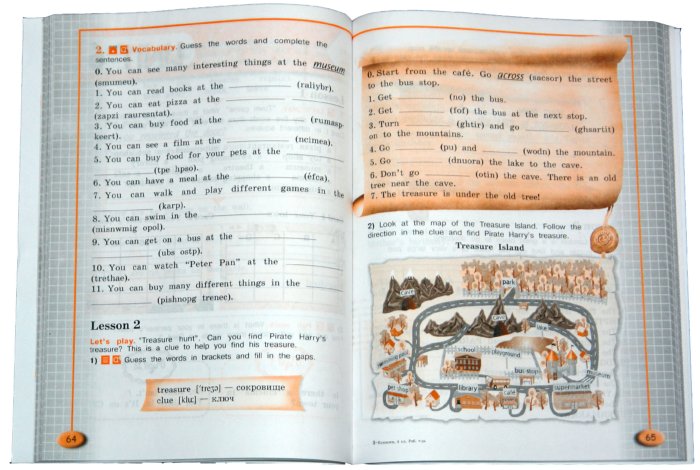 2. Vocabulary. Guess the words and complete the
sentences.
0. You can see many interesting things at the museum
(smumeu).
1. You can read books at the __________ (raliybr).
2. You can eat pizza at the __________
(zapzi rauresntat).
3. You can buy food at the __________ (rumasp-
keert).
4. You can see a film at the __________ (ncimea).
5. You can buy food for your pets at the __________
__________ (tpe hpso).
6. You can have a meal at the __________ (éfca).
7. You can walk and play different games in the
__________ (karp).
8. You can swim in the __________
(misnwmig opol).
9. You can get on a bus at the __________
__________ (ubs ostp).
10. You can watch "Peter Pan" at the __________
(trethae).
11. You can buy many different things in the __________
__________ (pishnopg trenec).
Lesson 2
Let's play. "Treasure hunt". Can you find Pirate Harry's
treasure? This is a clue to help you find his treasure.
1) Guess the words in brackets and fill in the gaps.
treasure ['treʒə] — сокровище
clue [klu:] — ключ
64
0. Start from the café. Go across (sacsor) the street
to the bus stop.
1. Get __________ (no) the bus.
2. Get __________ (fof) the bus at the next stop.
3. Turn __________ (ghtir) and go __________ (ghsartit)
on to the mountains.
4. Go __________ (pu) and __________ (wodn) the mountain.
5. Go __________ (dnuora) the lake to the cave.
6. Don't go __________ (otin) the cave. There is an old
tree near the cave.
7. The treasure is under the old tree!
2) Look at the map of the Treasure Island. Follow the
direction in the clue and find Pirate Harry's treasure.
Treasure Island
park
cave
cave
lake
school
playground
swimming pool
bus stop
museum
pet shop
library
café
supermarket
65